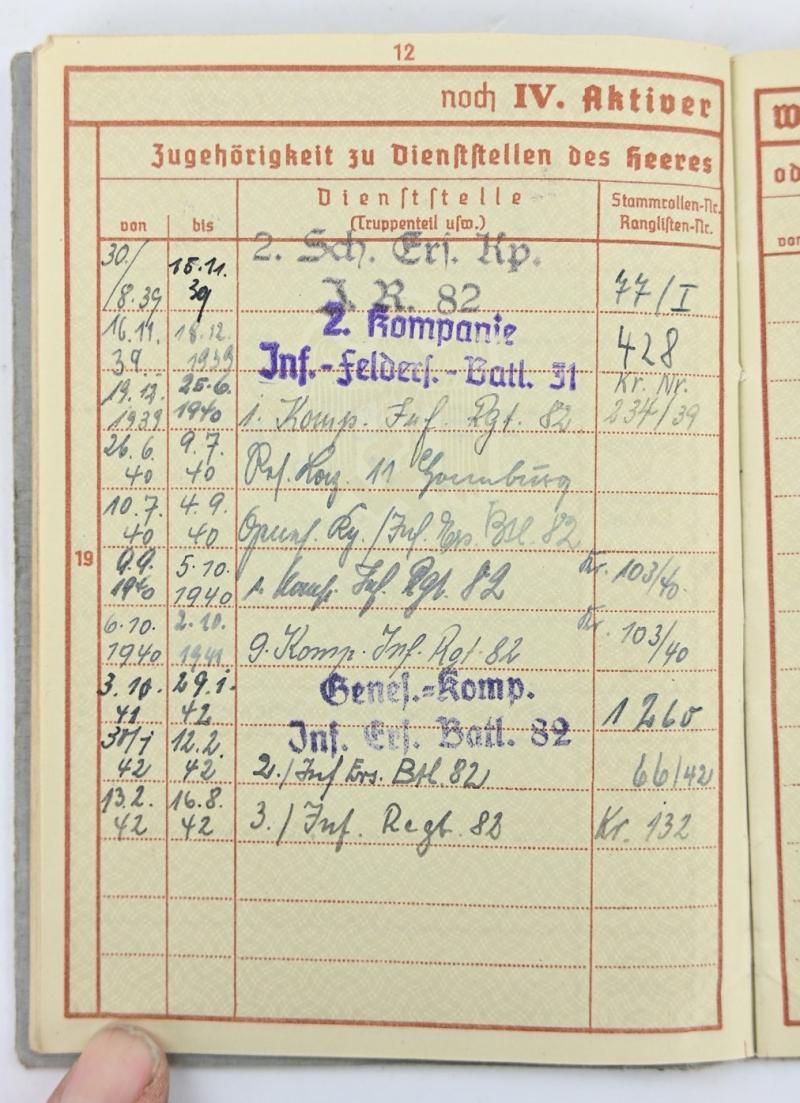 12
noch IV. Aktiver
W
Zugehörigkeit zu Dienststellen des Heeres
od
von bis Dienststelle (Truppenteil usw.) Stammrollen-Nr. Ranglisten-Nr.
von
30./8.39 15.11.39 2. Sch. Ers. Kp. J. R. 82 77/I
16.11.39 18.12.1939 2. Kompanie Inf.-Felders.-Batl. 31 428
19.12.1939 25.6.1940 1. Komp. Inf. Rgt. 82 Kr. Nr. 234/39
26.6.40 9.7.40 Res. Laz. 11
10.7.40 4.9.40 Genes. Kp./Inf. Ers. Btl. 82
19
9.9.1940 5.10.1940 1. Komp. Inf. Rgt. 82 Kr. 103/40
6.10.1940 2.10.1941 9. Komp. Inf. Rgt. 82 Kr. 103/40
3.10.41 29.1.42 Genes.-Komp. Inf. Ers. Batl. 82 1260
30/1 42 12.2.42 2./Inf Ers. Btl. 82 66/42
13.2.42 16.8.42 3./Inf. Regt. 82 Kr. 132